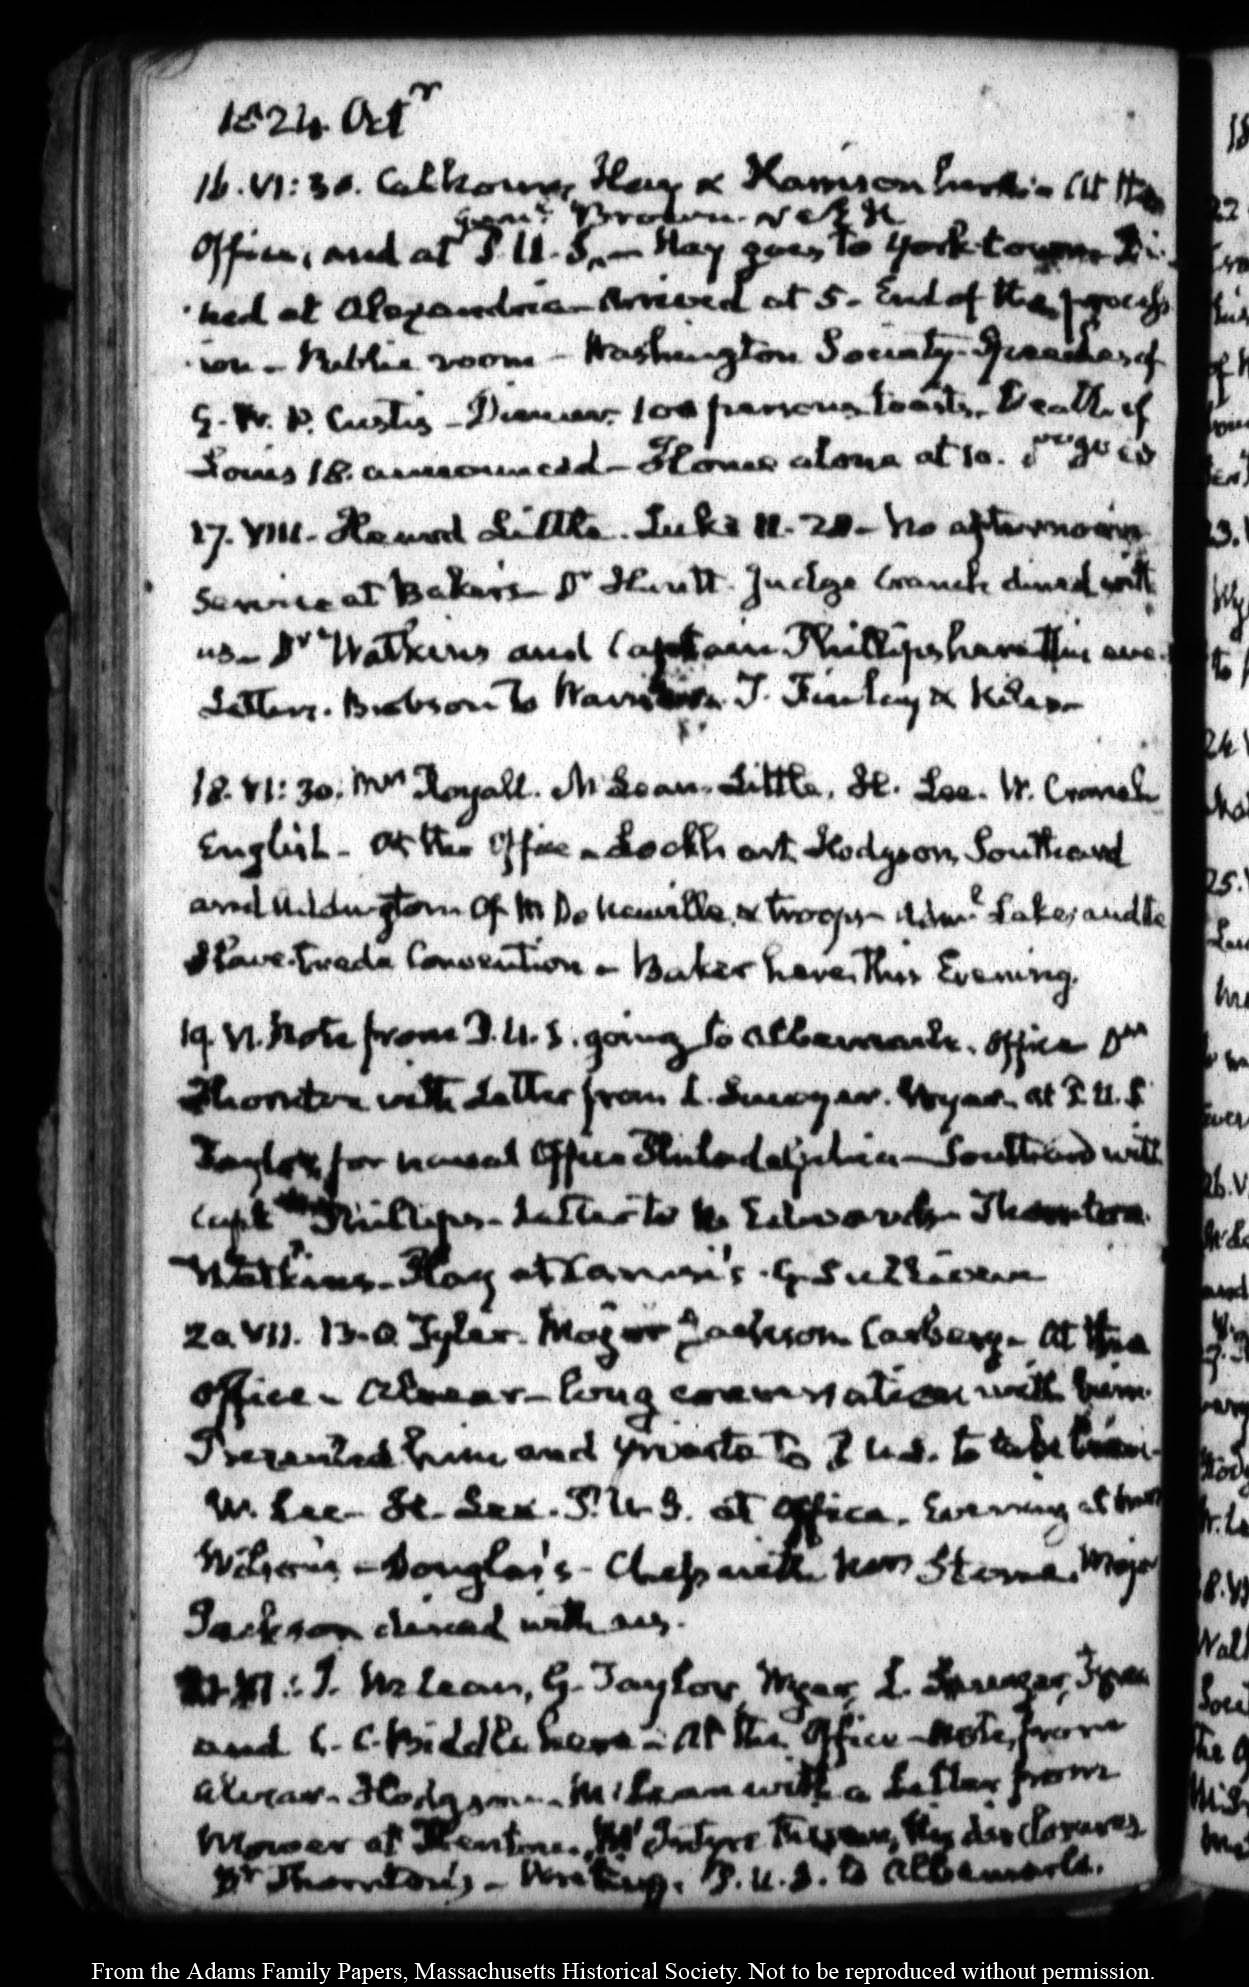 1824 Octr
16. VI: 30. Calhoun, Hay & Harrison here. At the
Genl. Brown
Office, and at P. U. S. — Hay goes to York-town Di
ned at Alexandria — Arrived at 5 — End of the process
ion — Public room — Washington Society — Speeches of
G. W. P. Custis — Dinner. 100 persons toasts. Death of
Louis 18. announced — Home alone at 10.
17. VIII — Heard Little. Luke 11. 28 — No afternoon
service at Baker's — Dr Huntt. Judge Cranch dined with
us — Dr Watkins and Captain Phillips here this eve.
Letters. Brobson to T. Finlay &
18. VI: 30. Mrs Royall. McLean. Little. H. Lee. W. Cranch
English — At the Office — Lockhart, Hodgson, Southard
and Addington Of M De Neuville, & troops — Adml Lake, and the
Slave-trade Convention — Baker here this Evening.
19. VI. Note from P. U. S. going to Albemarle. Office Dr
Thornton with Letter from L. Sawyer. Wyer — at P. U. S
Taylor, for naval Office Philadelphia — Southard with
Capt Phillips — Letter to N. Edwards — Thornton.
Watkins — Hay at Gales's. G Sullivan
20. VII. 13. Tyler. Major Jackson Carbery — At the
office — Alvear — long conversation with him.
Presented him and to P U S. to take
W. Lee — H. Lee. P. U. S. at Office. Evening at
Wilson's — Douglas's — Chess with Stone. Major
Jackson dined with us.
J. McLean, G. Taylor, Wyer, L. Sawyer,
and C. C. Biddle here — At the Office — note from
Alvear — Hodgson — McLean with a Letter from
Mower at Trenton. McIntyre his disclosures
Dr Thornton's — Writing. P. U. S. to Albemarle.
From the Adams Family Papers, Massachusetts Historical Society. Not to be reproduced without permission.